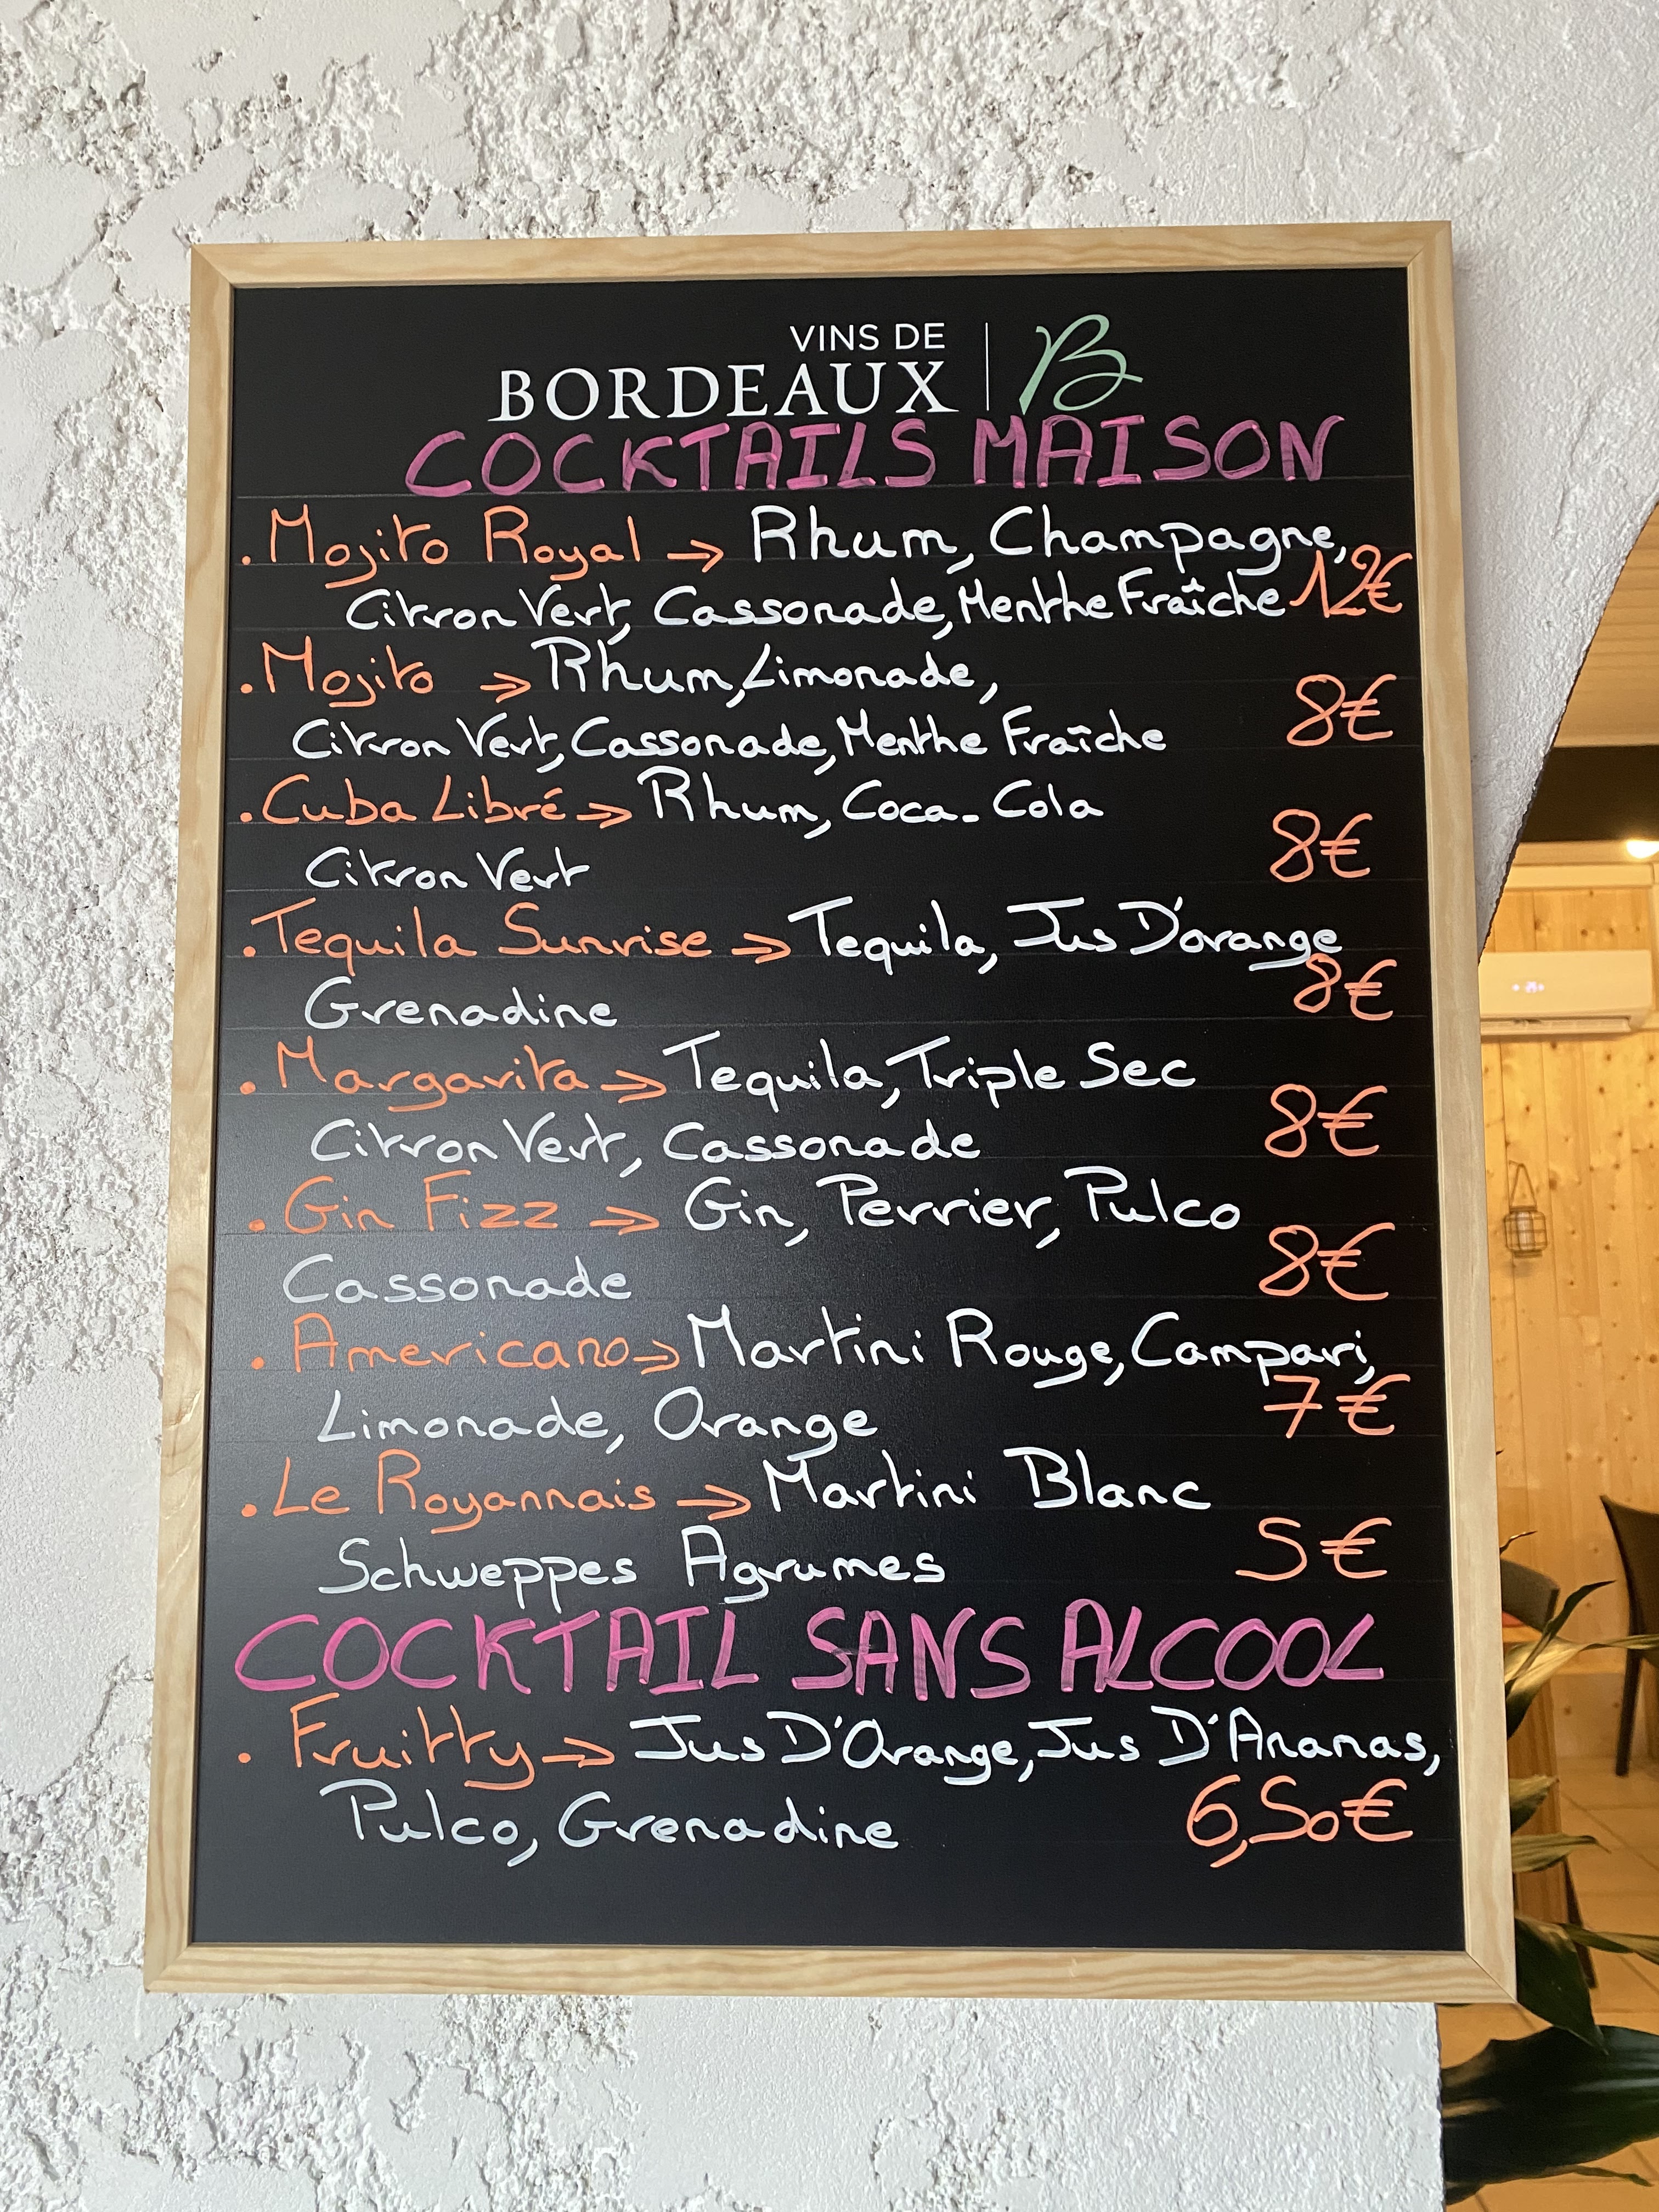 VINS DE
BORDEAUX B
COCKTAILS MAISON
. Mojito Royal → Rhum, Champagne,
Citron Vert, Cassonade, Menthe Fraîche 12€
. Mojito → Rhum, Limonade,
Citron Vert, Cassonade, Menthe Fraîche 8€
. Cuba Libré → Rhum, Coca-Cola
Citron Vert 8€
. Tequila Sunrise → Tequila, Jus D'orange
Grenadine 8€
. Margarita → Tequila, Triple Sec
Citron Vert, Cassonade 8€
. Gin Fizz → Gin, Perrier, Pulco
Cassonade 8€
. Americano → Martini Rouge, Campari,
Limonade, Orange 7€
. Le Royannais → Martini Blanc
Schweppes Agrumes 5€
COCKTAIL SANS ALCOOL
. Fruitty → Jus D'Orange, Jus D'Ananas,
Pulco, Grenadine 6,50€